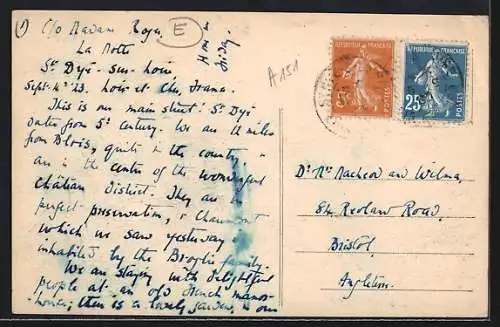 1) c/o Madam Roger
La Motte
St Dyé-sur-Loire
Sept. 4th 23. Loir-et-Cher, France.
This is our main street! St Dyé
dates from 5th Century. We are 12 miles
from Blois, quite in the country
are in the centre of the wonderful
Château District. They are in
perfect preservation, & Chaumont
which we saw yesterday is
inhabited by the Broglie family.
We are staying with delightful
people at an old French manor-
house; there is a lovely garden, & our
E
A151
REPUBLIQUE FRANÇAISE
POSTES
REPUBLIQUE FRANÇAISE
25c
POSTES
Dr. Mrs Macleod and Wilma,
Redland Road,
Bristol,
Angleterre.